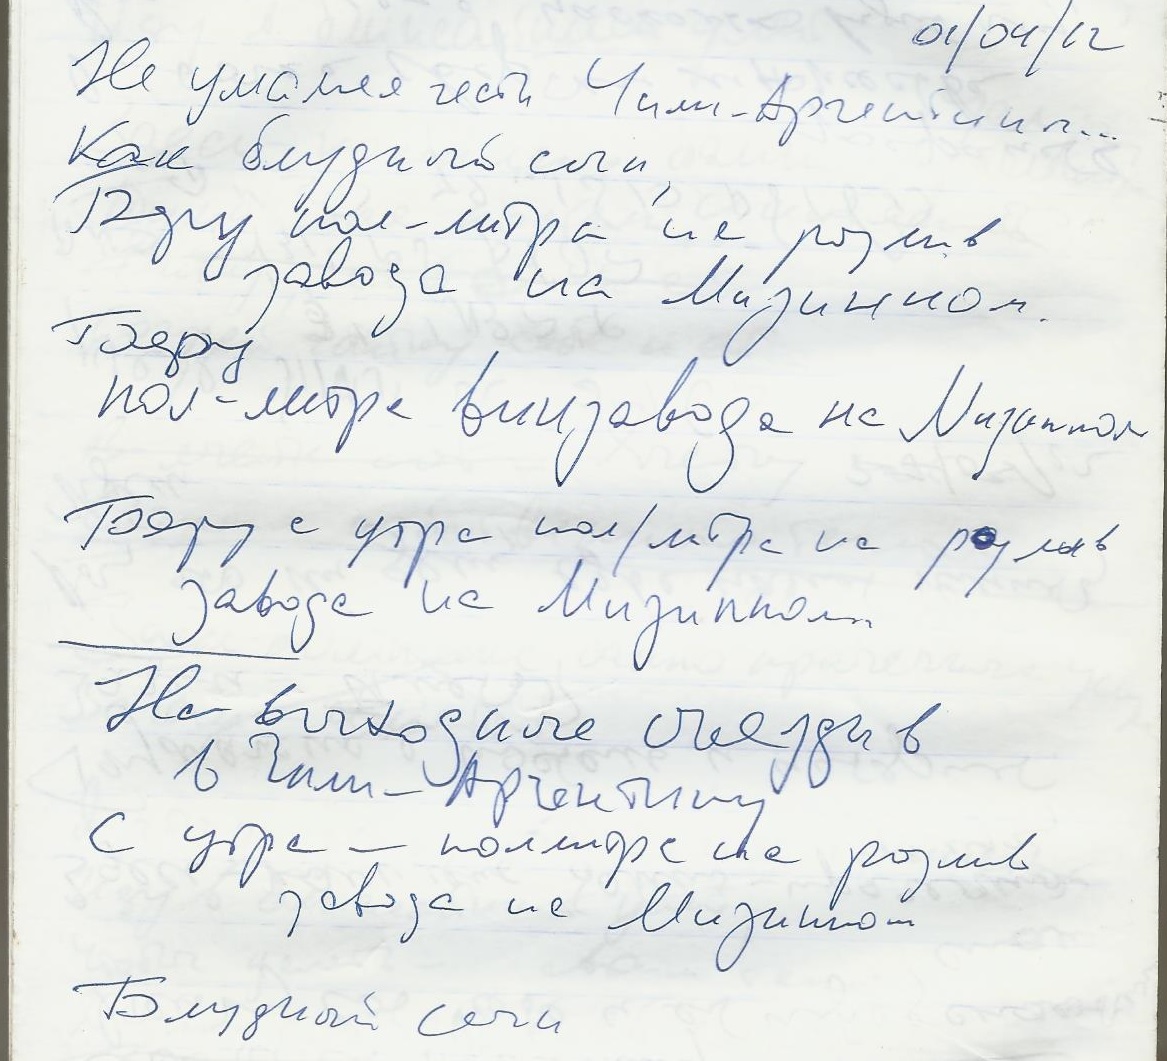 01/04/12
Не умаляя чести Чили-Аргентины...
Как блудный сын,
Беру пол-литра на розлив
завода на Мизинном.
Беру
пол-литра винзавода на Мизинном
Беру с утра пол/литра на розлив
завода на Мизинном
На выходные съезди в
в Чили-Аргентину
С утра — поллитра на розлив
завода на Мизинном
Блудный сын